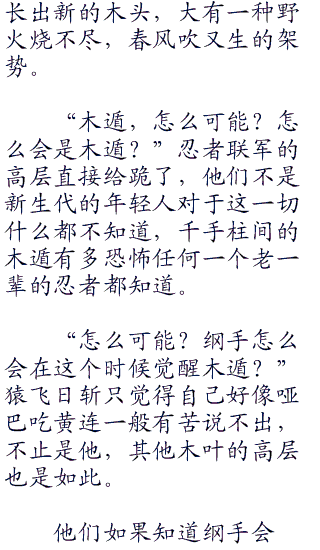 长出新的木头，大有一种野
火烧不尽，春风吹又生的架
势。
“木遁，怎么可能？怎
么会是木遁？”忍者联军的
高层直接给跪了，他们不是
新生代的年轻人对于这一切
什么都不知道，千手柱间的
木遁有多恐怖任何一个老一
辈的忍者都知道。
“怎么可能？纲手怎么
会在这个时候觉醒木遁？”
猿飞日斩只觉得自己好像哑
巴吃黄连一般有苦说不出，
不止是他，其他木叶的高层
也是如此。
他们如果知道纲手会